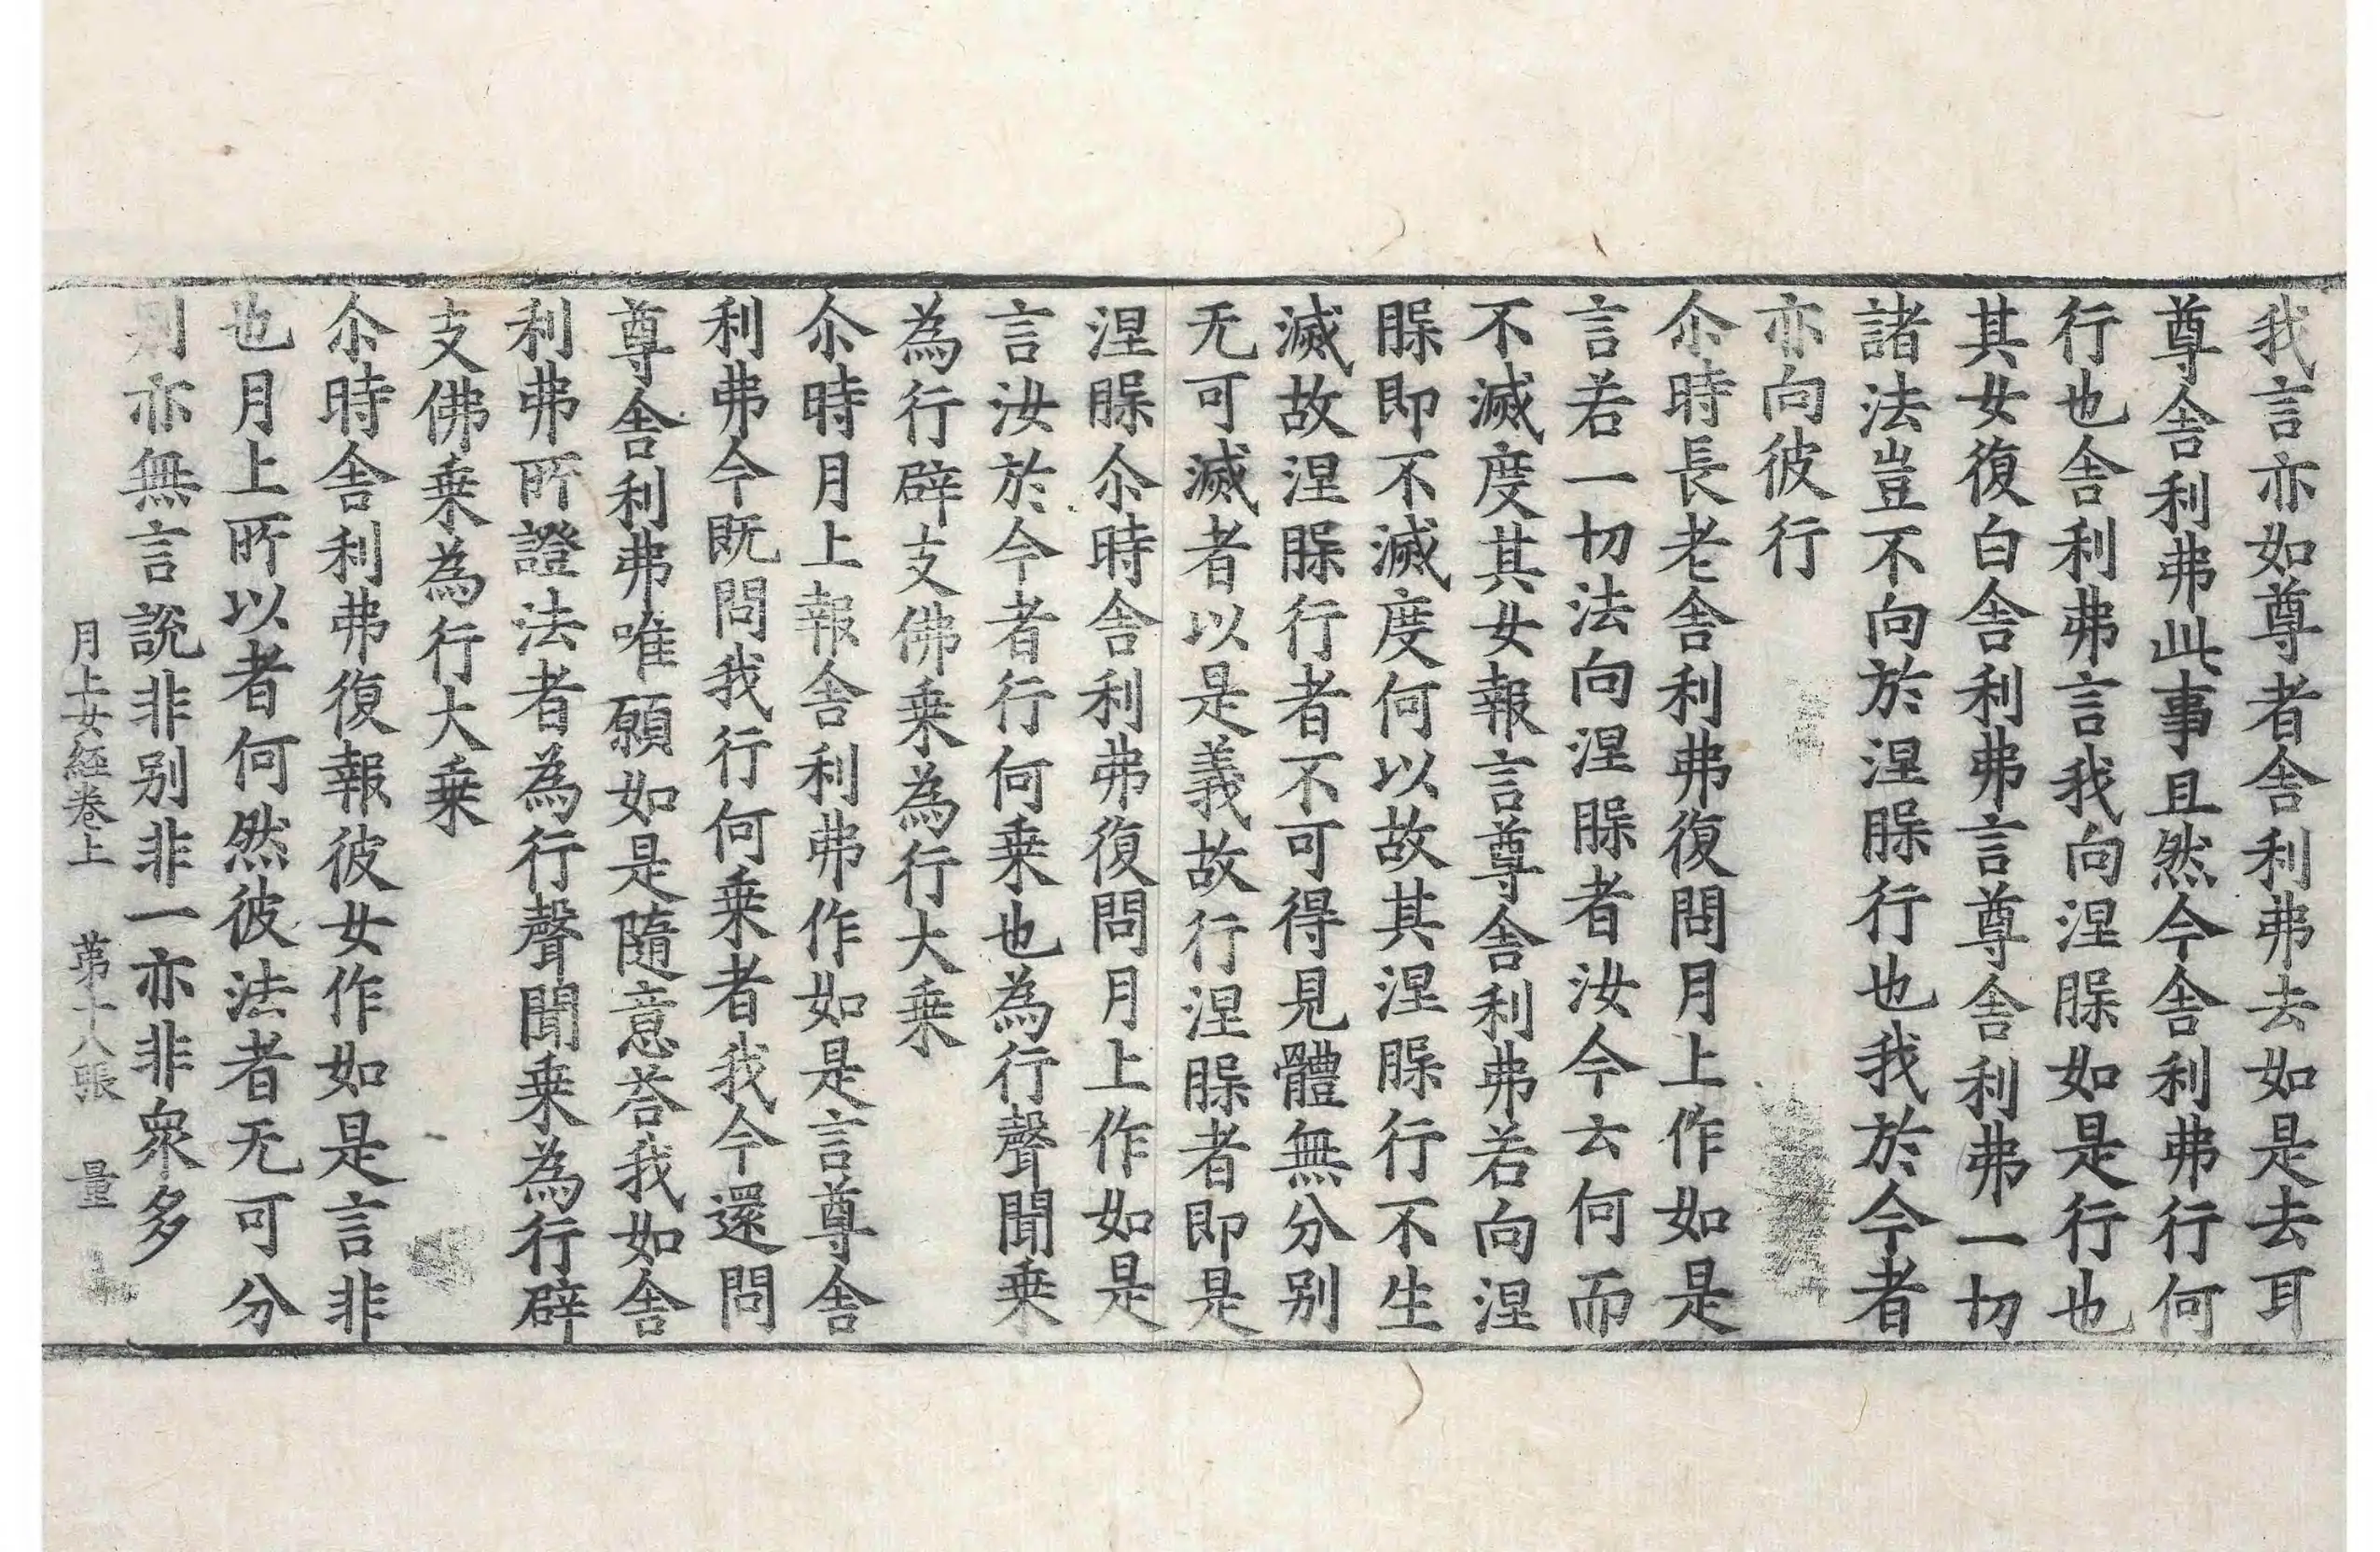 我言亦如尊者舍利弗去如是去耳
尊舍利弗此事且然今舍利弗行何
行也舍利弗言我向涅槃如是行也
其女復白舍利弗言尊舍利弗一切
諸法豈不向於涅槃行也我於今者
亦向彼行
尒時長老舍利弗復問月上作如是
言若一切法向涅槃者汝今云何而
不滅度其女報言尊舍利弗若向涅
槃即不滅度何以故其涅槃行不生
滅故涅槃行者不可得見體無分别
无可滅者以是義故行涅槃者即是
涅槃尒時舍利弗復問月上作如是
言汝於今者行何乗也為行聲聞乗
為行辟支佛乗為行大乗
尒時月上報舍利弗作如是言尊舍
利弗今既問我行何乗者我今還問
尊舍利弗唯願如是隨意荅我如舍
利弗所證法者為行聲聞乗為行辟
支佛乗為行大乗
尒時舍利弗復報彼女作如是言非
也月上所以者何然彼法者无可分
别亦無言說非别非一亦非衆多
月上女経卷上 苐十八張 量